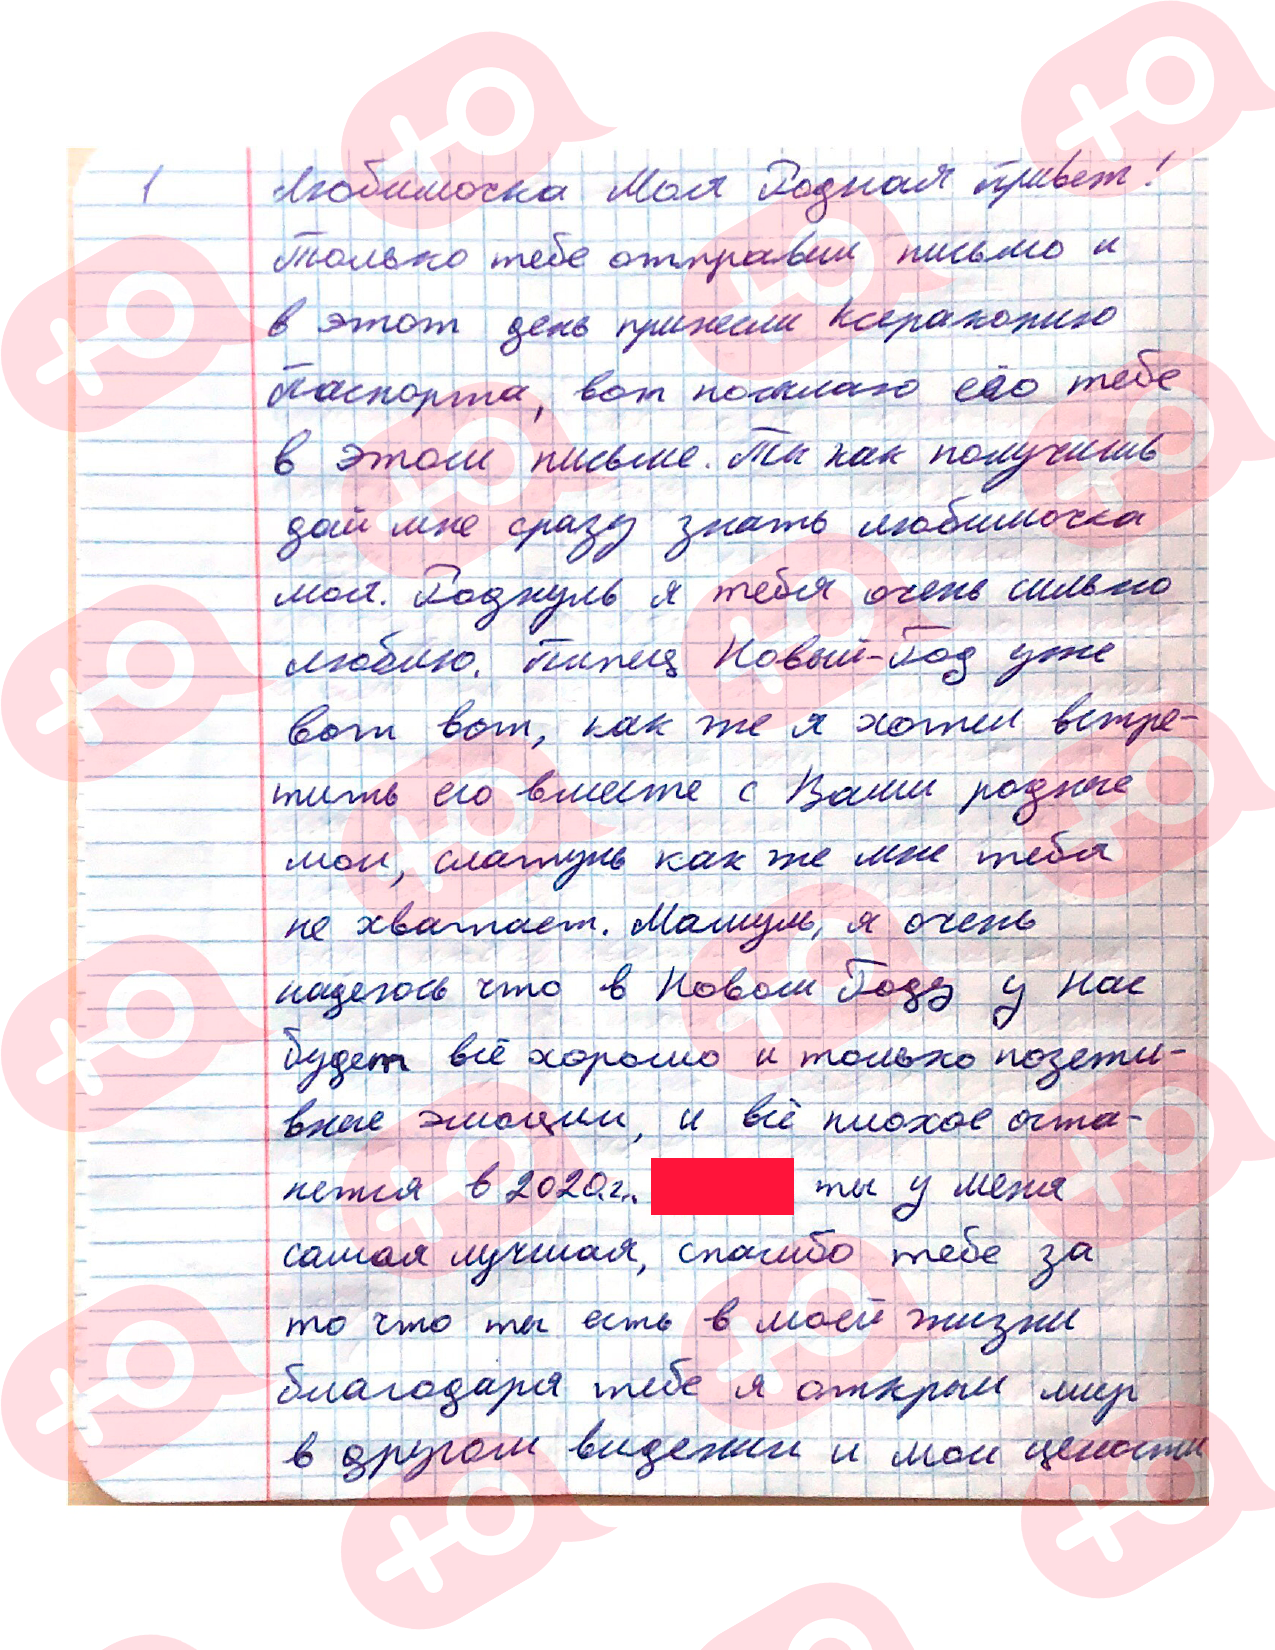 1
Любимочка Моя Родная привет!
Только тебе отправил письмо и
в этот день принесли Ксеракопию
Паспорта, вот посылаю её тебе
в этом письме. Ты как получишь
дай мне сразу знать любимочка
моя. Роднуль я тебя очень сильно
люблю. Пипец Новый-Год уже
вот вот, как же я хотел встре-
тить его вместе с Вами родные
мои, слатунь как же мне тебя
не хватает. Мамуль, я очень
надеюсь что в Новом Году у Нас
будет всё хорошо и только позети-
вные эмоции, и всё плохое оста-
нется в 2020г. ты у меня
самая лучшая, спасибо тебе за
то что ты есть в моей жизни
благодаря тебе я открыл мир
в другом видении и мои цености